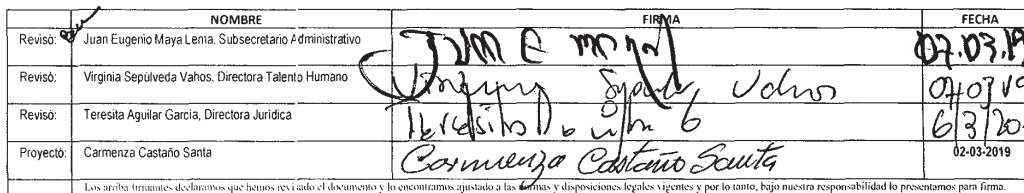 NOMBRE FIRMA FECHA
Revisó: Juan Eugenio Maya Lema. Subsecretario Administrativo 07.03.19
Revisó: Virginia Sepúlveda Vahos. Directora Talento Humano 07/03/19
Revisó: Teresita Aguilar García, Directora Jurídica Teresita 6/3/20
Proyectó: Carmenza Castaño Santa Carmenza Castaño Santa 02-03-2019
Los arriba firmantes declaramos que hemos revisado el documento y lo encontramos ajustado a las normas y disposiciones legales vigentes y por lo tanto, bajo nuestra responsabilidad lo presentamos para firma.